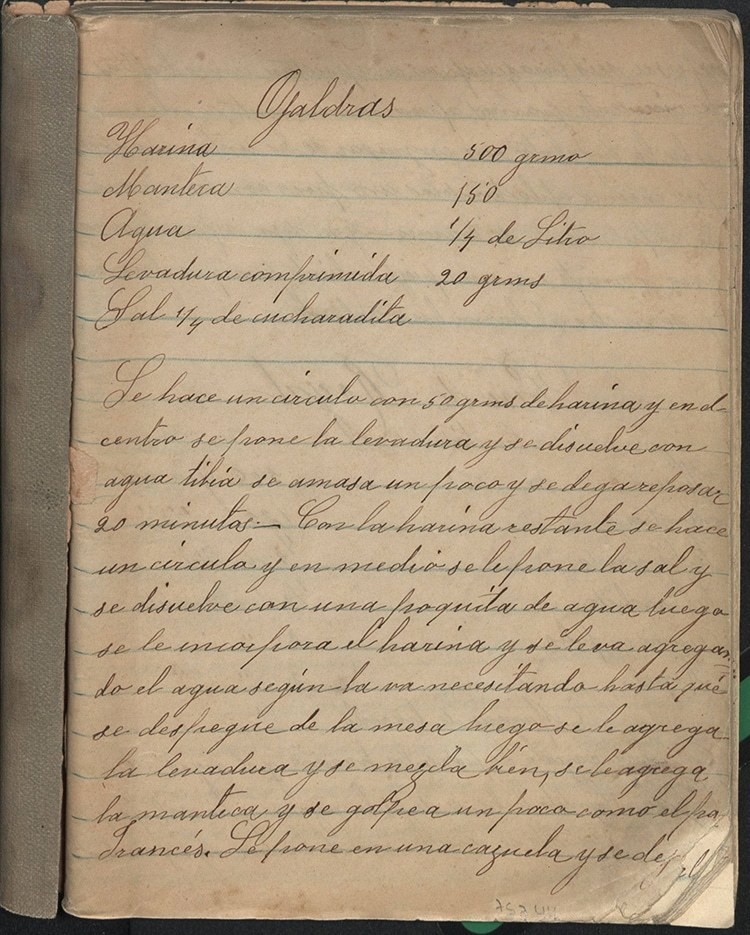 Ojaldras
Harina 500 grmo
Manteca 150
Agua 1/4 de Litro
Levadura comprimida 20 grms
Sal 1/4 de cucharadita
Se hace un circulo con 50 grms de harina y en el
centro se pone la levadura y se disuelve con
agua tibia se amasa un poco y se dega reposar
20 minutos.— Con la harina restante se hace
un circulo y en medio se le pone la sal y
se disuelve con una poquita de agua luego
se le incorpora el harina y se le va agregan-
do el agua según la va necesitando hasta qué
se despegue de la mesa luego se le agrega
la levadura y se mezcla bien, se le agrega
la manteca y se golpea un poco como el pa
francés. Se pone en una cazuela y se de